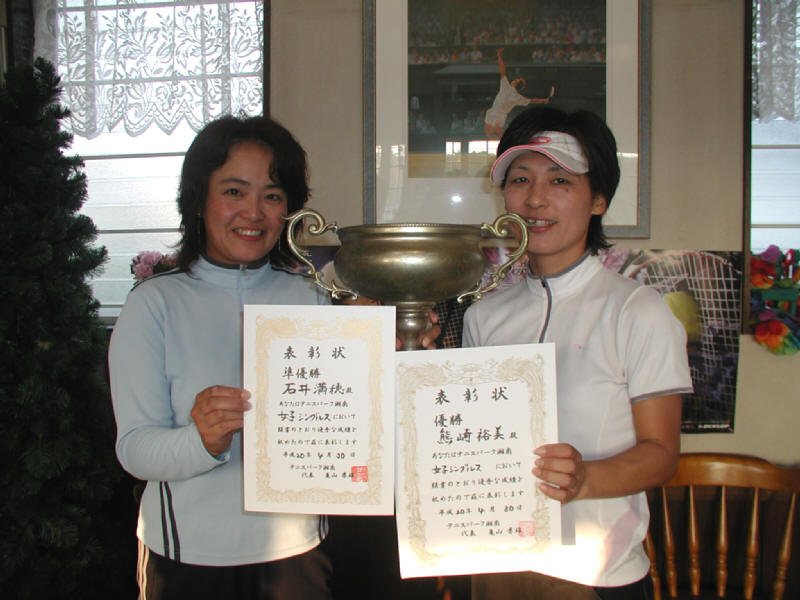 表彰状
準優勝
石井満穂殿
あなたはテニスパーク湘南
女子シングルスにおいて
頭書のとおり優秀な成績を
収めたので茲に表彰します
平成20年4月30日
テニスパーク湘南
代表
表彰状
優勝
熊崎裕美殿
あなたはテニスパーク湘南
女子シングルスにおいて
頭書のとおり優秀な成績を
収めたので茲に表彰します
平成20年4月30日
テニスパーク湘南
代表